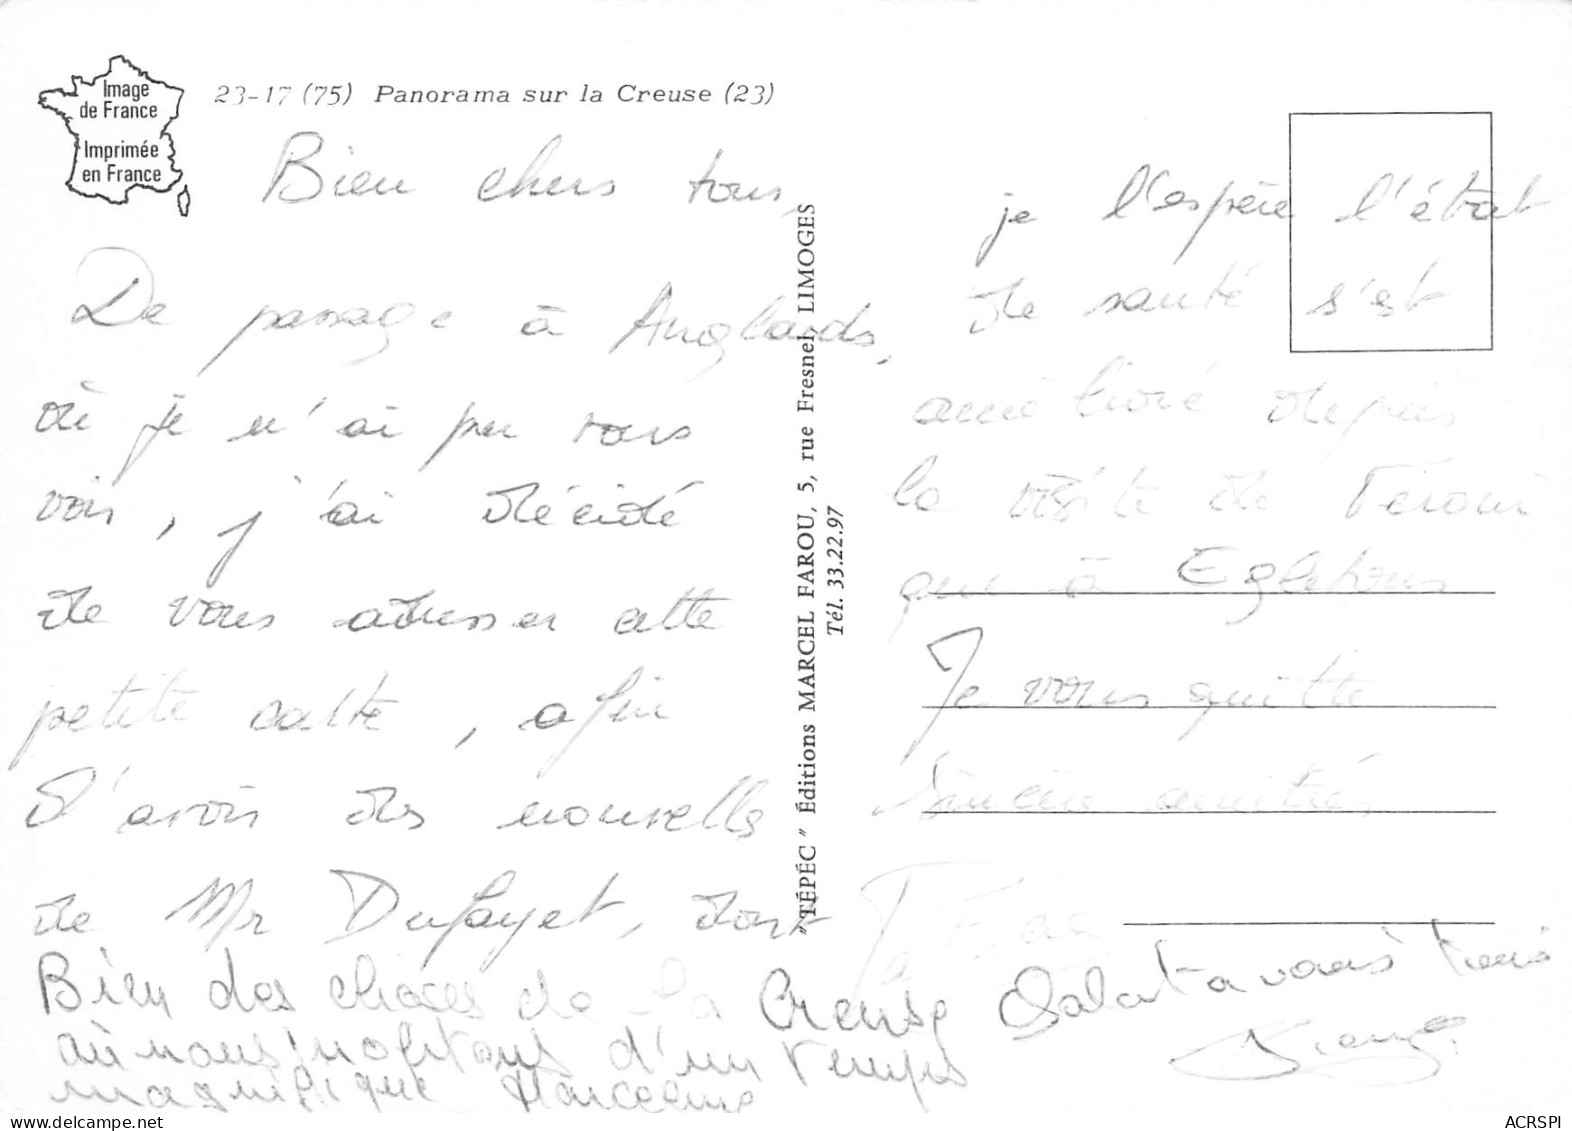 Image
de France
Imprimée
en France
23-17 (75) Panorama sur la Creuse (23)
Bien chers tous,
De passage à Anglards,
où je n'ai pu vous
voir, j'ai décidé
de vous adresser cette
petite carte, afin
d'avoir des nouvelles
de Mr Dufayet, dont
je l'espère l'état
de santé s'est
amélioré depuis
la visite de
que à Egletons
Je vous quitte
Sincères amitiés
Bien des choses de la Creuse
où nous profitons d'un temps
magnifique Marceline
Salut à vous tous
"TÉPÉC" Éditions MARCEL FAROU, 5, rue Fresnel, LIMOGES
Tél. 33.22.97
ACRSPI